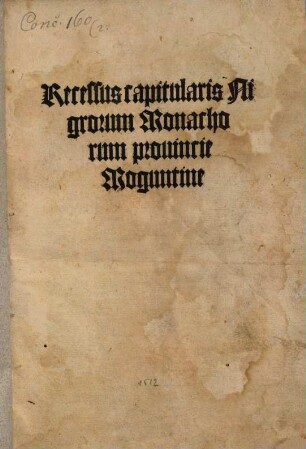 Conc. 160/2
Recessus capitularis Ni
grorum Monacho
rum prouincie
Moguntine
1512